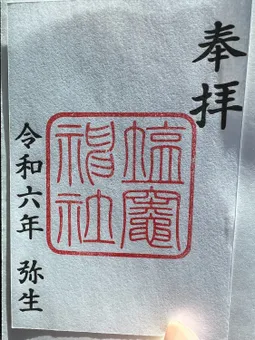 奉拝
塩竈
神社
令和六年 弥生